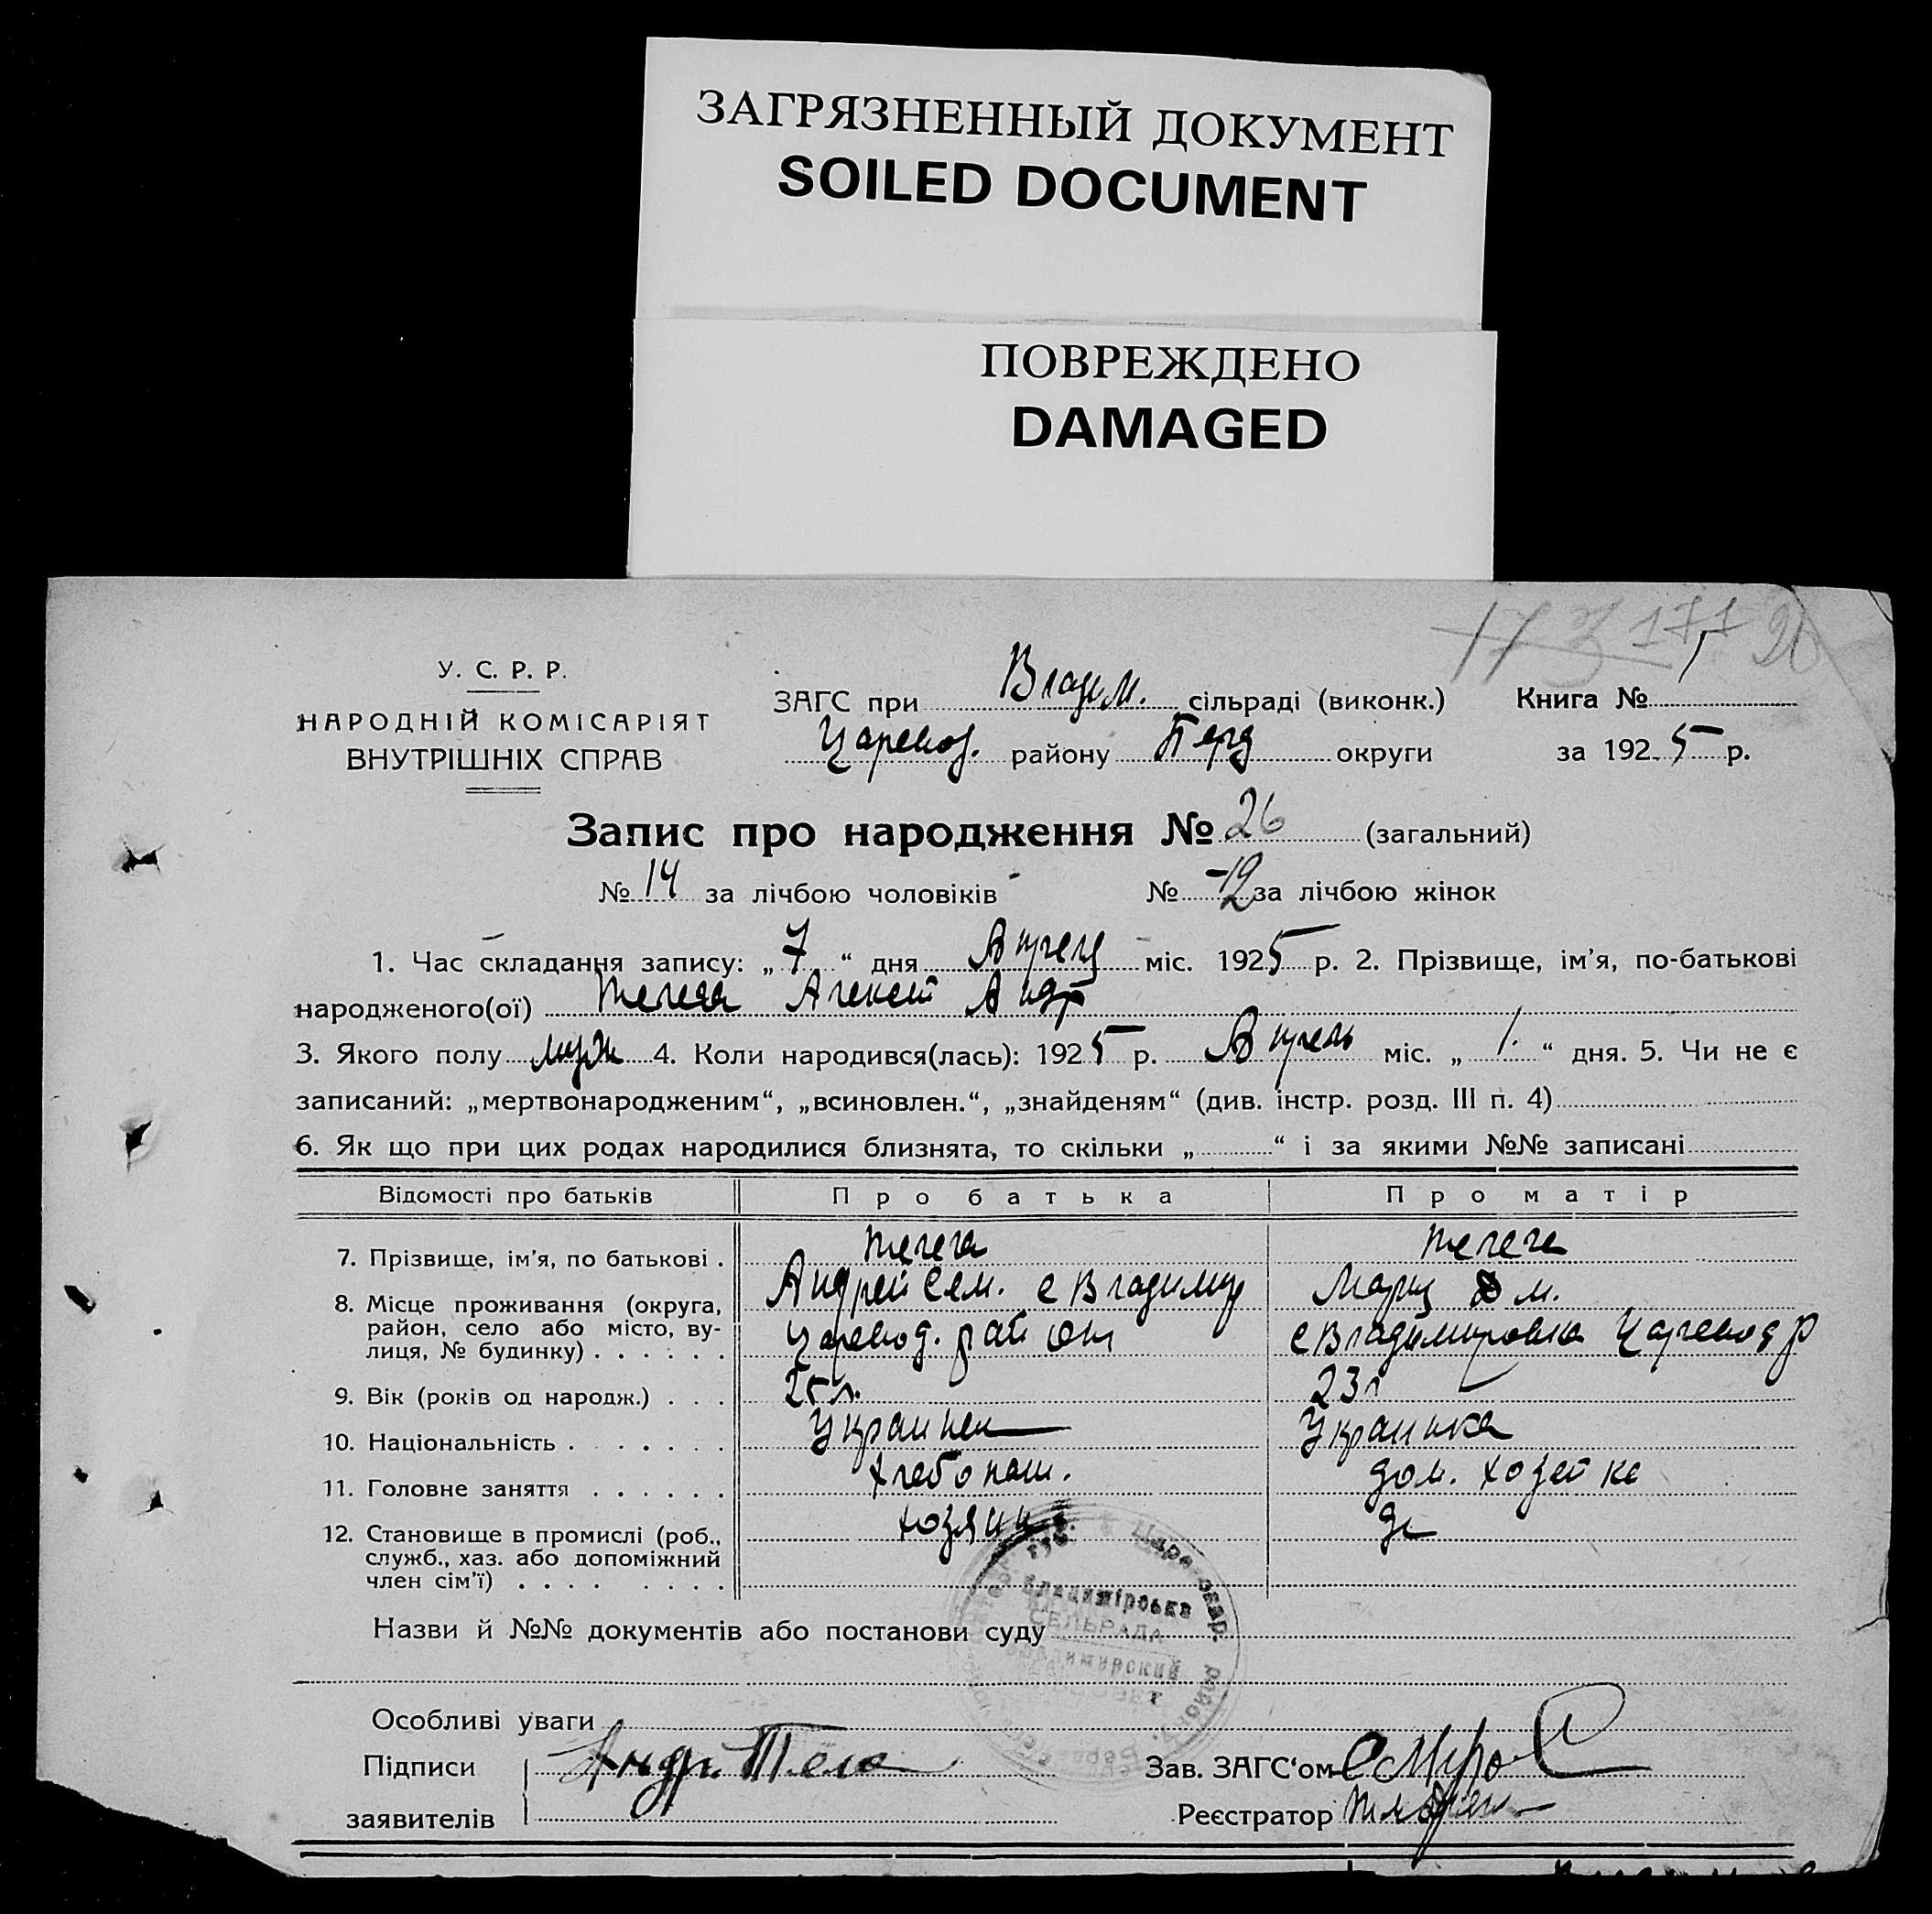 ЗАГРЯЗНЕННЫЙ ДОКУМЕНТ
SOILED DOCUMENT
ПОВРЕЖДЕНО
DAMAGED
17 3 171 26
У. С. Р. Р.
НАРОДНІЙ КОМІСАРІЯТ
ВНУТРІШНІХ СПРАВ
ЗАГС при Владим. сільраді (виконк.) Книга № 1
Царевод. району Берд округи за 1925 р.
Запис про народження № 26 (загальний)
№ 14 за лічбою чоловіків № -12 за лічбою жінок
1. Час складання запису: „ 7 “ дня Апреля міс. 1925 р. 2. Прізвище, ім’я, по-батькові
народженого(ої) Телега Алексей Андр
3. Якого полу муж 4. Коли народився(лась): 1925 р. Апрель міс. „ 1. “ дня. 5. Чи не є
записаний: „мертвонародженим“, „всиновлен.“, „знайденям“ (див. інстр. розд. III п. 4)
6. Як що при цих родах народилися близнята, то скільки „ “ і за якими №№ записані
Відомості про батьків Про батька Про матір
7. Прізвище, ім’я, по батькові . Телега Телега
8. Місце проживання (округа, район, село або місто, вулиця, № будинку) . . . . . . Андрей Сем. с Владимир Мария М.
Царевод. район с Владимировка Царевод р
9. Вік (років од народж.) . . . 25 л. 23 л
10. Національність . . . . . . . Украинец Украинка
11. Головне заняття . . . . . . Хлебопаш. дом. хозейка
12. Становище в промислі (роб., служб., хаз. або допоміжний член сім’ї) . . . . . . . . хозяин
Владимірська
СЕЛЬРАДА
Назви й №№ документів або постанови суду
Особливі уваги
Підписи Андр. Телега Зав. ЗАГС‘ом
заявителів Реєстратор